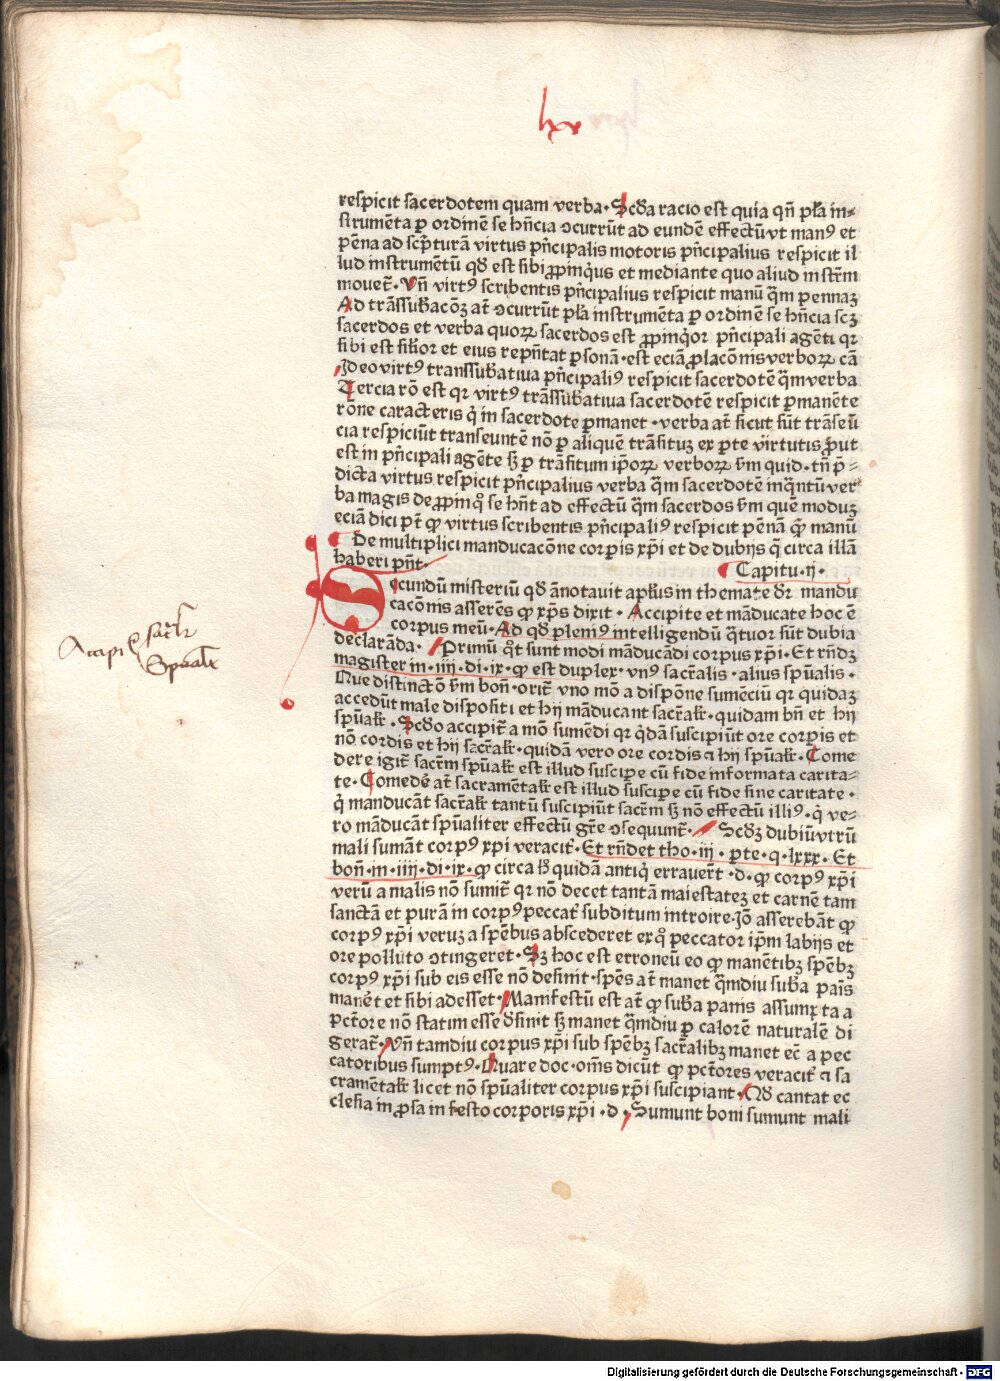 lxv
respicit sacerdotem quam verba· Scd̄a racio est quia qn̄ pl̄a in⸗
strumēta ꝑ ordinē se hn̄cia ↄcurrūt ad eundē effectū vt manꝰ et
pēna ad scp̄turā virtus pn̄cipalis motoris pn̄cipalius respicit il
lud instrumētū qd̄ est sibi ꝓpinqus et mediante quo aliud instrm̄
mouet̄· Vn̄ virtꝰ scribentis pn̄cipalius respicit manū qͫ pennaꝫ
Ad trāssub̄acōꝫ at̄ ↄcurrūt pl̄a instrumēta ꝑ ordinē se hn̄cia scꝫ
sacerdos et verba quoꝝ sacerdos est ꝓpinqͥor pn̄cipali agēti qr
sibi est sil̄ior et eius rep̄ntat ꝑsonā· est eciā ꝓlacōnis verboꝝ cā
Ideo virtꝰ transsub̄atiua pn̄cipaliꝰ respicit sacerdotē qͫ verba
Tercia rō est qr virtꝰ trāssub̄atiua sacerdotē respicit ꝑmanēte
rōne caracteris qͥ in sacerdote ꝑmanet · verba at̄ sicut sūt trāseū
cia respiciūt transeuntē nō ꝑ aliquē trāsituꝫ ex ꝑte virtutis ꝓut
est in pn̄cipali agēte sꝫ ꝑ trāsitum ip̄oꝝ verboꝝ sm̄ quid· tn̄ p̄⸗
dicta virtus respicit pn̄cipalius verba qͫ sacerdotē inqͣntū ver
ba magis de ꝓpinqͦ se hn̄t ad effectū qͫ sacerdos sm̄ quē moduꝫ
eciā dici pt̄ ꝙ virtus scribentis pn̄cipaliꝰ respicit pēnā qͫ manū
De multiplici manducacōne corꝑis xp̄i et de dubijs q̄ circa illā
haberi pn̄t·
Capitu· ij·
Secundū misteriū qd̄ ānotauit apl̄us in themate dr̄ mandu
cacōnis asserēs ꝙ xp̄s dixit · Accipite et māducate hoc ē
corpus meū· Ad qd̄ pleniꝰ intelligendū qͣtuor sūt dubia
declarāda· Primū qͦt sunt modi māducādi corpus xp̄i· Et rn̄dꝫ
magister in· iiij· di· ix· ꝙ est duplex· vnꝰ sacr̄alis · alius spūalis·
Que distinctō sm̄ bon̄· orit̄ vno mō a dispōne sumēciū qr quidaꝫ
accedūt male dispositi et hij māducant sacr̄alr̄· quidam bn̄ et hij
spūalr̄· Scd̄o accipit̄ a mō sumēdi qr qͥdā suscipiūt ore corꝑis et
nō cordis et hij sacr̄alr̄· quidā vero ore cordis ⁊ hij spūalr̄· Come
dere igit̄ sacrm̄ spūalr̄ est illud susciꝑe cū fide informata carita⸗
te· Comedē at̄ sacramētalr̄ est illud susciꝑe cū fide sine caritate ·
qͥ manducāt sacr̄alr̄ tantū suscipiūt sacrm̄ sꝫ nō effectū illiꝰ· qͥ ve⸗
ro māducāt spūaliter effectū gr̄e ↄsequunt̄· Scd̄ꝫ dubiū vtrū
mali sumāt corpꝰ xp̄i veracit̄· Et rn̄det tho· iij · ꝑte· q· lxxx· Et
bon̄· in· iiij· di· ix· ꝙ circa h̄ quidā antiqͥ erraueīt · d· ꝙ corpꝰ xp̄i
verū a malis nō sumit̄ qr nō decet tantā maiestateꝫ et carnē tam
sanctā et purā in corpꝰ peccat̄ subditum introire· Iō asserebāt ꝙ
corpꝰ xp̄i veruꝫ a spēbus abscederet ex qͦ peccator ip̄m labijs et
ore polluto ↄtingeret· Sꝫ hoc est erroneū eo ꝙ manētibꝫ spēbꝫ
corpꝰ xp̄i sub eis esse nō desinit· spēs at̄ manet qͫdiu sub̄a panis
manēt et sibi adesset· Manifestū est at̄ ꝙ sub̄a panis assumpta a
pctōre nō statim esse desinit sꝫ manet qͫdiu ꝑ calorē naturalē di
gerat̄· Vn̄ tamdiu corpus xp̄i sub spēbꝫ sacr̄alibꝫ manet ec̄ a pec
catoribus sumptꝰ· Quare doc· om̄s dicūt ꝙ pctōres veracit̄ ⁊ sa
cramētalr̄ licet nō spūaliter corpus xp̄i suscipiant· Qd̄ cantat ec
clesia in ꝓsa in festo corporis xp̄i · d · Sumunt boni sumunt mali
Digitalisierung gefördert durch die Deutsche Forschungsgemeinschaft - DFG